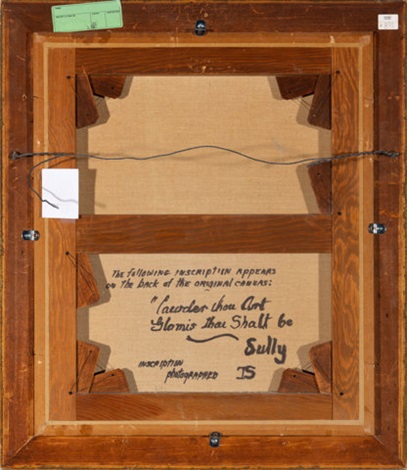 The following inscription appears
on the back of the original canvas:
"Cawder thou Art
Glomis thou Shalt be
Sully
inscription
photographed TS